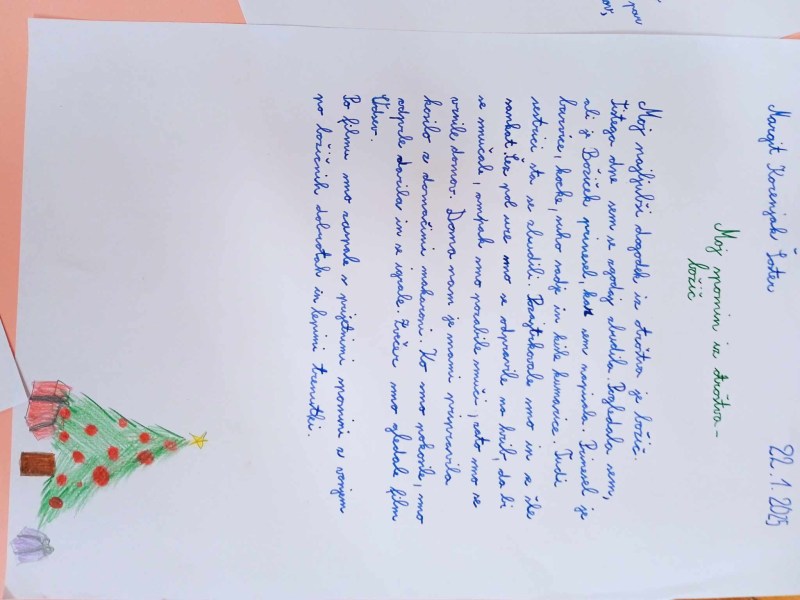 Margit Korenjak Šoter 22.1.2025
Moj spomin iz otroštva -
božič
Moj najljubši dogodek iz otroštva je božič.
Tistega dne sem se zgodaj zbudila. Pogledala sem,
ali je Božiček prinesel, kar sem napisala. Prinesel je
barvice, kocke, nebo radji in kile kumarice. Tudi
sestrici sta se zbudili. Pozajtrkovale smo in se šle
sankat. Čez pol ure smo se odpravile na hrib, da bi
se smučale, ampak smo pozabile smuči, zato smo se
vrnile domov. Doma nam je mami pripravila
kosilo z domačimi makaroni. Ko smo pokosile, smo
odprle darila in se igrale. Zvečer smo gledale film
Po filmu smo zaspale s prijetnimi spomini z vonjem
po božičnih dobrotah in lepimi trenutki.